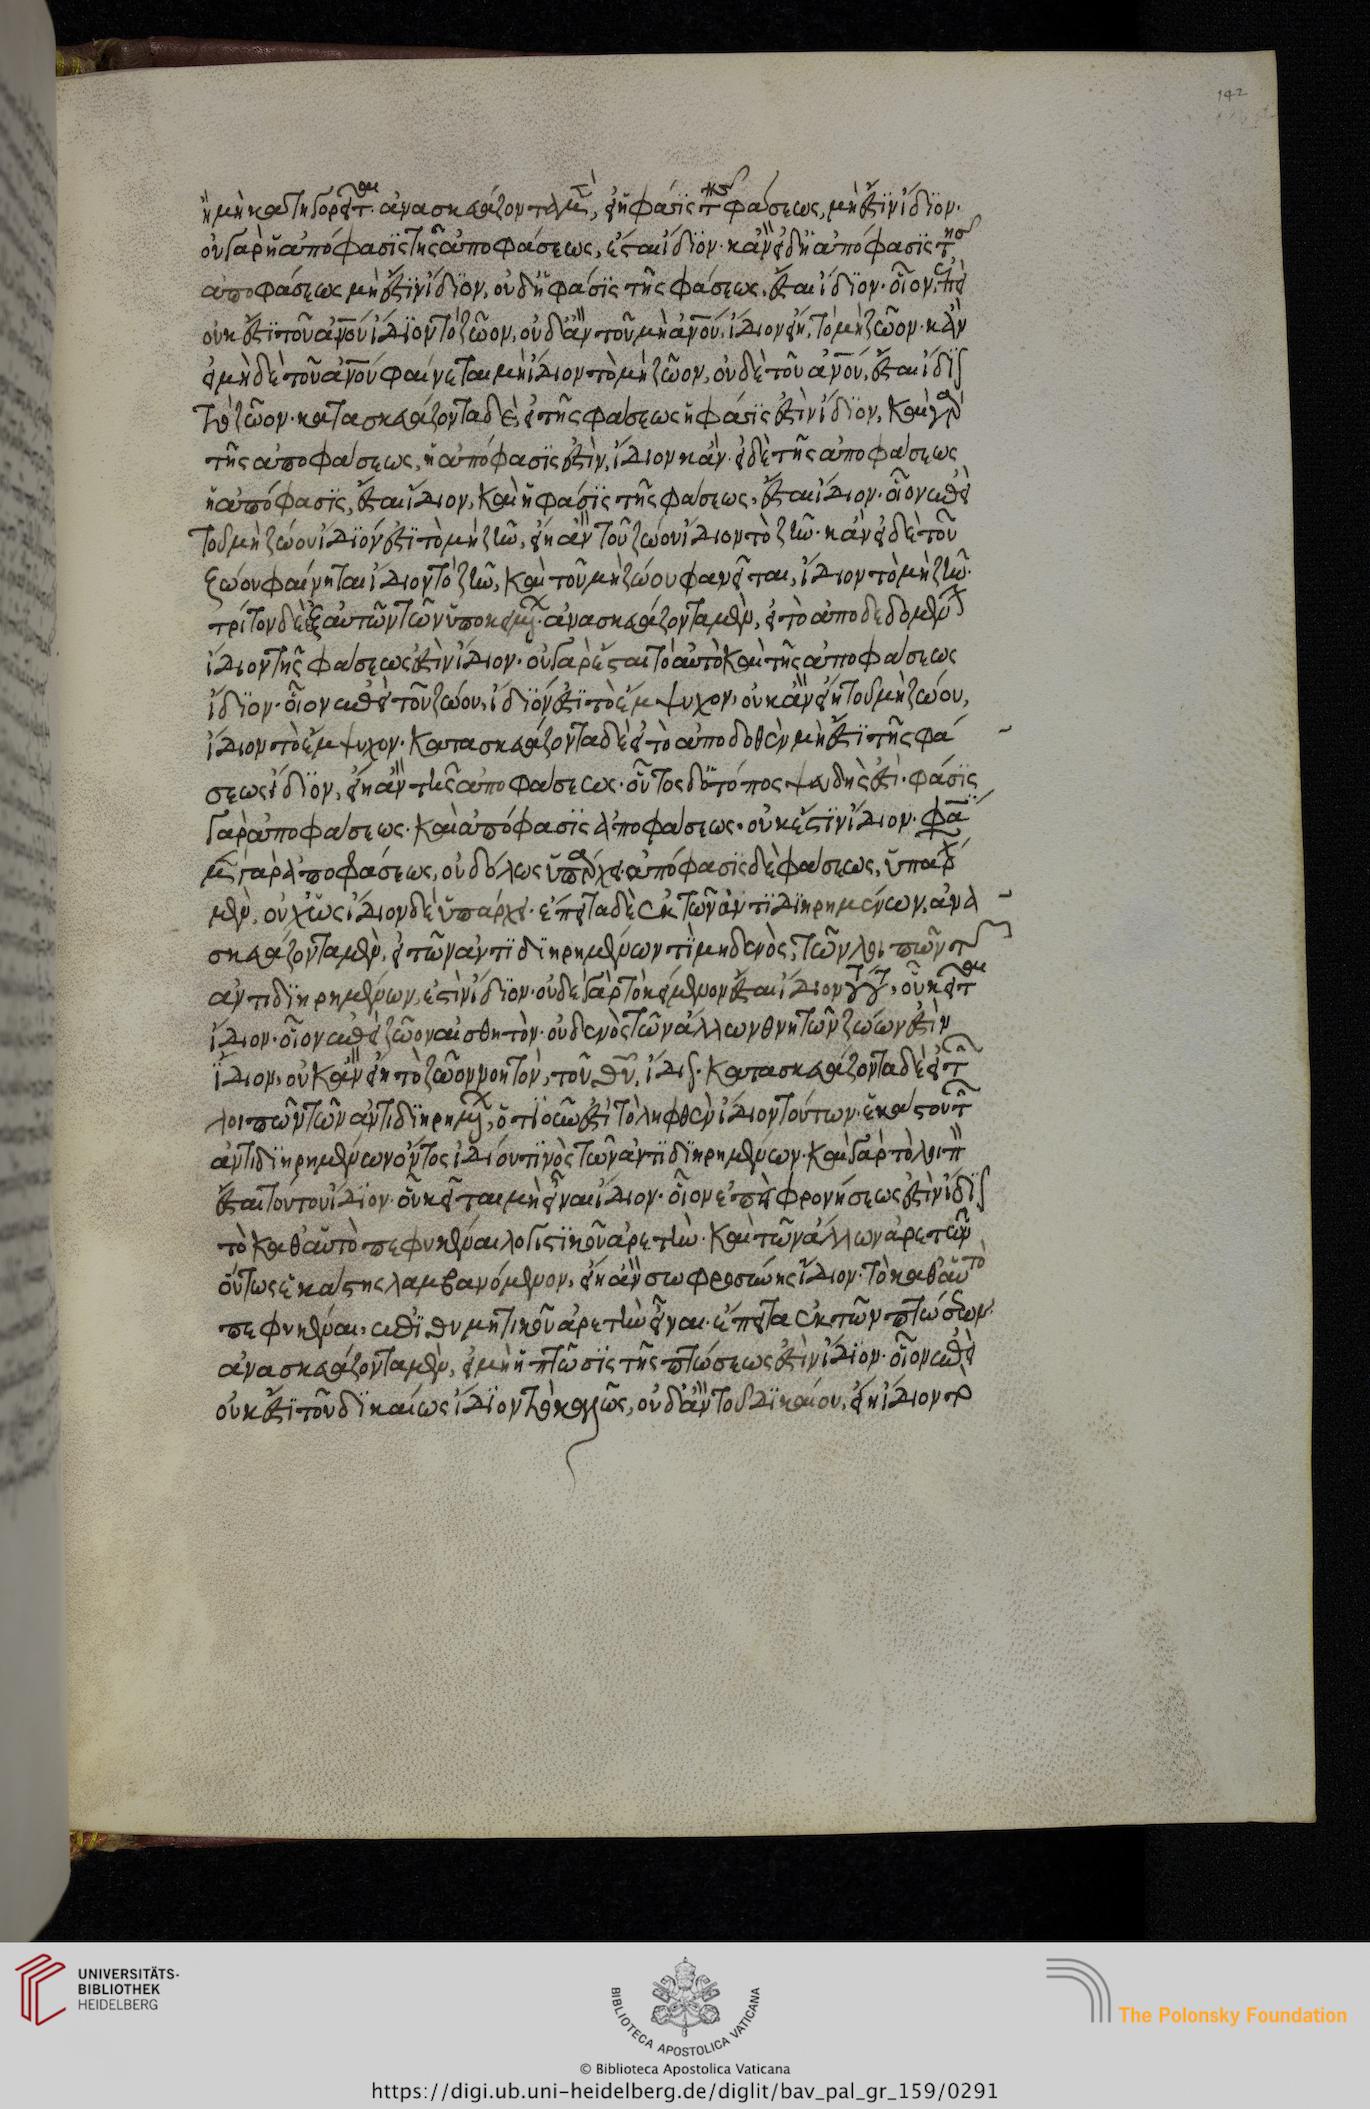 ἢ μὴ κατηγορεῖσθαι. ἀνασκευάζοντα μὲν, εἰ ἡ φάσις τῆς φάσεως, μὴ ἔστιν ἴδιον.
οὐ γὰρ ἡ ἀπόφασις τῆς ἀποφάσεως, ἔσται ἴδιον. κἂν εἰ δὲ ἡ ἀπόφασις τῆς
ἀποφάσεως μὴ ἔστιν ἴδιον, οὐδ' ἡ φάσις τῆς φάσεως, ἔσται ἴδιον. οἷον ἐπεὶ
οὐκ ἔστι τοῦ ἀνου ἴδιον τὸ ζῶον, οὐδ' ἂν τοῦ μὴ ἀνου, ἴδιον εἴη, τὸ μὴ ζῶον. κἂν
εἰ μὴ δὲ τοῦ ἀνου φαίνεται μὴ ἴδιον τὸ μὴ ζῶον, οὐδὲ τοῦ ἀνου, ἔσται ἴδιον
τὸ ζῶον. κατασκευάζοντα δὲ, εἰ τῆς φάσεως ἡ φάσις ἐστὶν ἴδιον, καὶ γὰρ
τῆς ἀποφάσεως, ἡ ἀπόφασις ἐστὶν, ἴδιον κἂν. εἰ δὲ τῆς ἀποφάσεως
ἡ ἀπόφασις, ἔσται ἴδιον, καὶ ἡ φάσις τῆς φάσεως, ἔσται ἴδιον. οἷον ἐπεὶ
τοῦ μὴ ζώου ἴδιόν ἐστι τὸ μὴ ζῆν, εἴη ἂν τοῦ ζώου ἴδιον τὸ ζῆν. κἂν εἰ δὲ τοῦ
ζώου φαίνηται ἴδιον τὸ ζῆν, καὶ τοῦ μὴ ζώου φανεῖται, ἴδιον τὸ μὴ ζῆν.
τρίτον δὲ ἐξ αὐτῶν τῶν ὑποκειμένων. ἀνασκευάζοντα μὲν, εἰ τὸ ἀποδεδομένον
ἴδιον τῆς φάσεως ἐστὶν ἴδιον. οὐ γὰρ ἔσται τὸ αὐτὸ καὶ τῆς ἀποφάσεως
ἴδιον. οἷον ἐπεὶ τοῦ ζώου, ἴδιόν ἐστι τὸ ἔμψυχον, οὐκ ἂν εἴη τοῦ μὴ ζώου,
ἴδιον τὸ ἔμψυχον. κατασκευάζοντα δὲ εἰ τὸ ἀποδοθὲν μὴ ἔστι τῆς φά
σεως ἴδιον, εἴη ἂν τῆς ἀποφάσεως. οὗτος δ' ὁ τόπος ψευδής ἐστι. φάσις
γὰρ ἀποφάσεως. καὶ ἀπόφασις ἀποφάσεως. οὐκ ἔστιν ἴδιον. φάσις
μὲν γὰρ ἀποφάσεως, οὐδ' ὅλως ὑπάρχει. ἀπόφασις δὲ φάσεως, ὑπάρχει
μὲν, οὐχ ὡς ἴδιον δὲ ὑπάρχει. ἔπειτα δὲ ἐκ τῶν ἀντιδιῃρημένων, ἀνα
σκευάζοντα μὲν, εἰ τῶν ἀντιδιῃρημένων τὶ μηδενὸς, τῶν λοιπῶν τῶν
ἀντιδιῃρημένων, ἐστὶν ἴδιον. οὐδὲ γὰρ τὸ κείμενον ἔσται ἴδιον τούτου, οὗ κεῖται
ἴδιον. οἷον ἐπεὶ ζῶον αἰσθητὸν. οὐδενὸς τῶν ἄλλων θνητῶν ζώων ἐστὶν
ἴδιον, οὐκ ἂν εἴη τὸ ζῶον νοητὸν, τοῦ θῦ, ἴδιον. κατασκευάζοντα δὲ εἰ τῶν
λοιπῶν τῶν ἀντιδιῃρημένων, ὁτιοῦν ἐστὶ τὸ ληφθὲν ἴδιον τούτων. ἑκάστου τῶν
ἀντιδιῃρημένων ὄντος ἰδίου τινὸς τῶν ἀντιδιῃρημένων. καὶ γὰρ τὸ λοιπὸν
ἔσται τούτου ἴδιον. οὗ κεῖται μὴ εἶναι ἴδιον. οἷον ἐπεὶ φρονήσεως ἐστὶν ἴδιον
τὸ καθ' αὑτὸ πεφυκέναι λογιστικοῦ ἀρετὴν. καὶ τῶν ἄλλων ἀρετῶν
οὕτως ἑκάστης λαμβανομένον, εἴη ἂν σωφροσύνης ἴδιον. τὸ καθ' αὑτὸ
πεφυκέναι, ἐπιθυμητικοῦ ἀρετὴν εἶναι. ἔπειτα ἐκ τῶν πτώσεων.
ἀνασκευάζοντα μὲν, εἰ μὴ ἡ πτῶσις τῆς πτώσεως ἐστὶν ἴδιον. οἷον ἐπεὶ
οὐκ ἔστι τοῦ δικαίως ἴδιον τὸ καλῶς, οὐδ' ἂν τοῦ δικαίου, εἴη ἴδιον τὸ
142
UNIVERSITÄTS-
BIBLIOTHEK
HEIDELBERG
BIBLIOTECA APOSTOLICA VATICANA
© Biblioteca Apostolica Vaticana
The Polonsky Foundation
https://digi.ub.uni-heidelberg.de/diglit/bav_pal_gr_159/0291